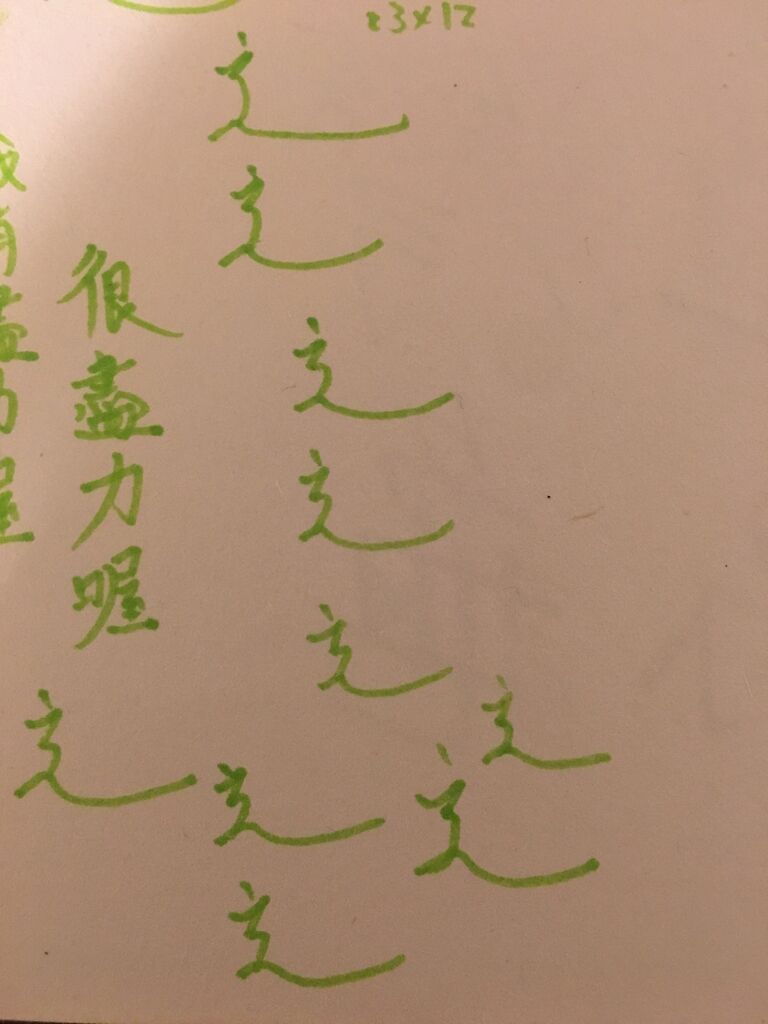 辶
辶
辶
辶
辶
辶
辶
辶
辶
辶
很盡力喔